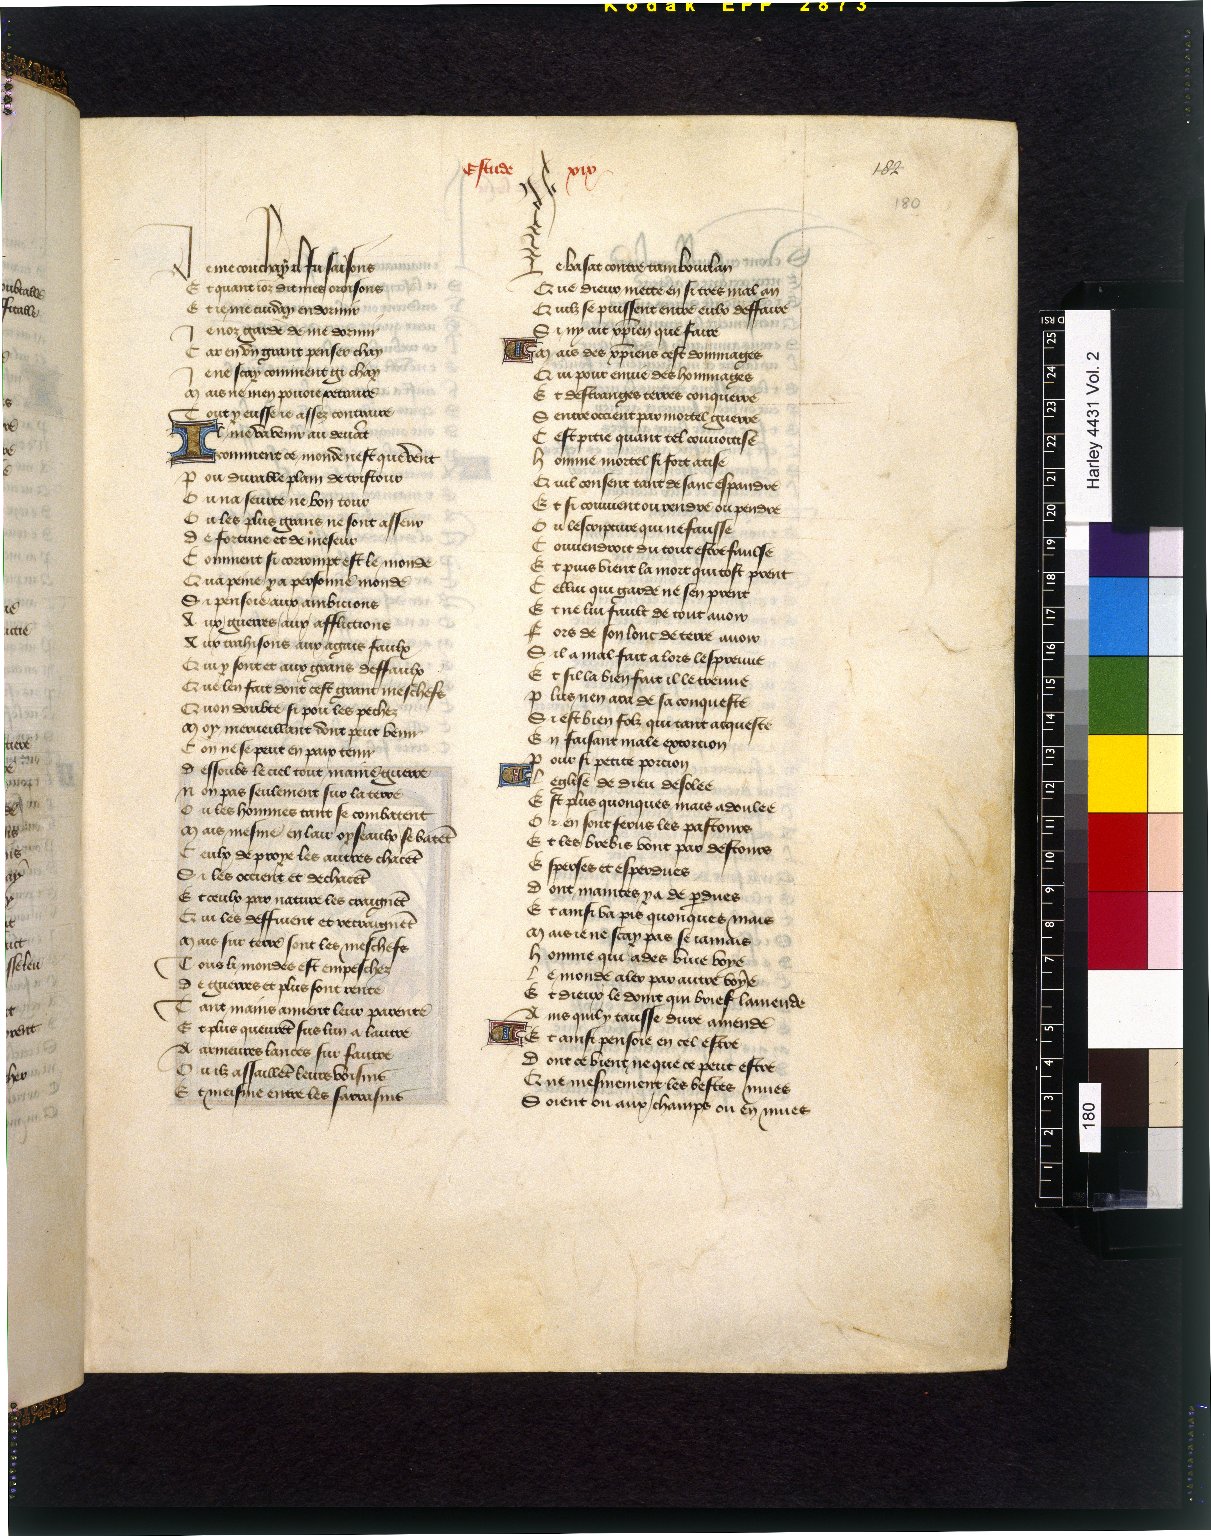 Kodak EPP 2873
Estude xix
182
180
Je me couchay il fu saisons
Et quant ioz dit mes oroisons
Et ie me cuiday endormir
Je noz garde de me dormir
Car en vn grant penser chay
Je ne scay comment gi chay
Mais ne men pouoie retraire
Tout y eusse ie assez contraire
Il me va venir au deuāt
comment ce monde nest que vent
Pou durable plain de tristour
Ou na seurte ne bon tour
Ou les plus grans ne sont asseur
De fortune et de meseur
Comment si corrompt est le monde
Qua peine y a personne monde
Si pensoie aux ambicions
Aux guerres aux afflictions
Aux trahisons aux agais faulx
Qui y sont et aux grans deffaulx
Que len fait dont cest grant meschefs
Quon doubte si pou les pechez
Moy merueillant dont peut venir
Con ne se peut en paix tenir
Dessoubz le ciel tout maine guerre
Non pas seulement sur la terre
Ou les hommes tant se combatent
Mais mesme en lair oyseaulx se batēt
Ceulx de proye les autres chacēt
Si les occient et dechacēt
Et ceulx par nature les craignēt
Qui les deffuient et retraignēt
Mais sur terre sont les meschefs
Tous li mondes est empeschez
De guerres et plus sont rente
Tant mains aiment leur parente
Et plus queurēt sus lun a lautre
Armeures lances sur fautre
Ou ilz assaillēt leurs voisins
Et meisme entre les sarrasins
Le basat contre tamboulan
Que dieux mette en si tres mal an
Quilz se puissent entre eulx deffaire
Si ny ait xp̄ien que faire
Mais des xp̄iens cest dommages
Qui pour enuie des hommages
Et destranges terres conquerre
Sentre occient par mortel guerre
Cest pitie quant tel couuoitise
Homme mortel si fort atise
Quil consent tant de sanc espandre
Et si conuient ou rendre ou pendre
Ou lescripture qui ne fausse
Conuendroit du tout estre faulse
Et puis vient la mort qui tost prent
Cellui qui garde ne sen prent
Et ne lui fault de tout auoir
Fors de son lonc de terre auoir
Sil a mal fait a lors lespreuue
Et sil la bien fait il le treuue
Plus nen ara de sa conqueste
Si est bien folz qui tant acqueste
En faisant male extorcion
Pour si petite porcion
Leglise de dieu desolee
Est plus quonques mais adoulee
Or en sont ferus les pastours
Et les brebis vont par destours
Esperses et esperdues
Dont maintes y a de p̄dues
Et ainsi va pis quonques mais
Mais ie ne scay pas se iamais
Homme qui a des viue voye
Le monde aler par autre voye
Et dieux le doint qui brief lamende
Ains quil y tausse dure amende
Et ainsi pensoie en cel estre
Dont ce vient ne que ce peut estre
Que mesmement les bestes mues
Soient ou aux champs ou en mues
Harley 4431 Vol. 2
180